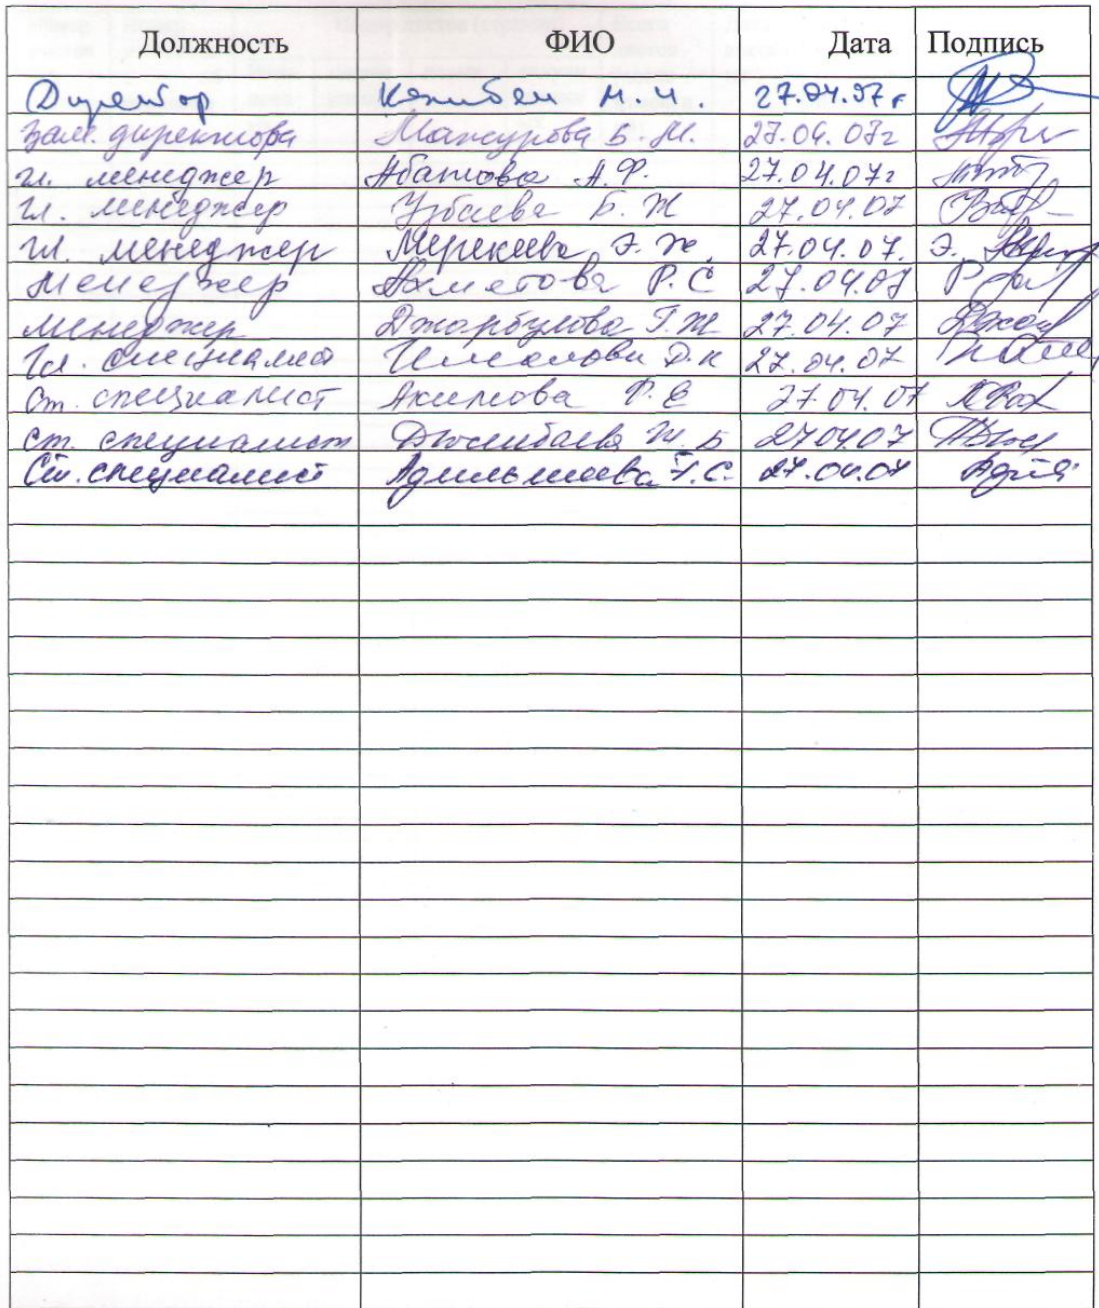 Должность ФИО Дата Подпись
Директор Кенибаев М.И. 27.04.07г
Зам. директора Мансурова Б.М. 27.04.07г
гл. менеджер Абатова А.Ф. 27.04.07г
гл. менеджер Узбаева Б.Ж 27.04.07
гл. менеджер Мерекеева Э.Ж. 27.04.07.
менеджер Ахметова Р.С 27.04.07
менеджер Джарбулова Г.Ж 27.04.07
Гл. специалист Д.К 27.04.07
Ст. специалист Акимова Р.Е 27.04.07
ст. специалист Дюсенбаева Ж.Б 270407
Ст. специалист Адильшиева Г.С. 27.04.07